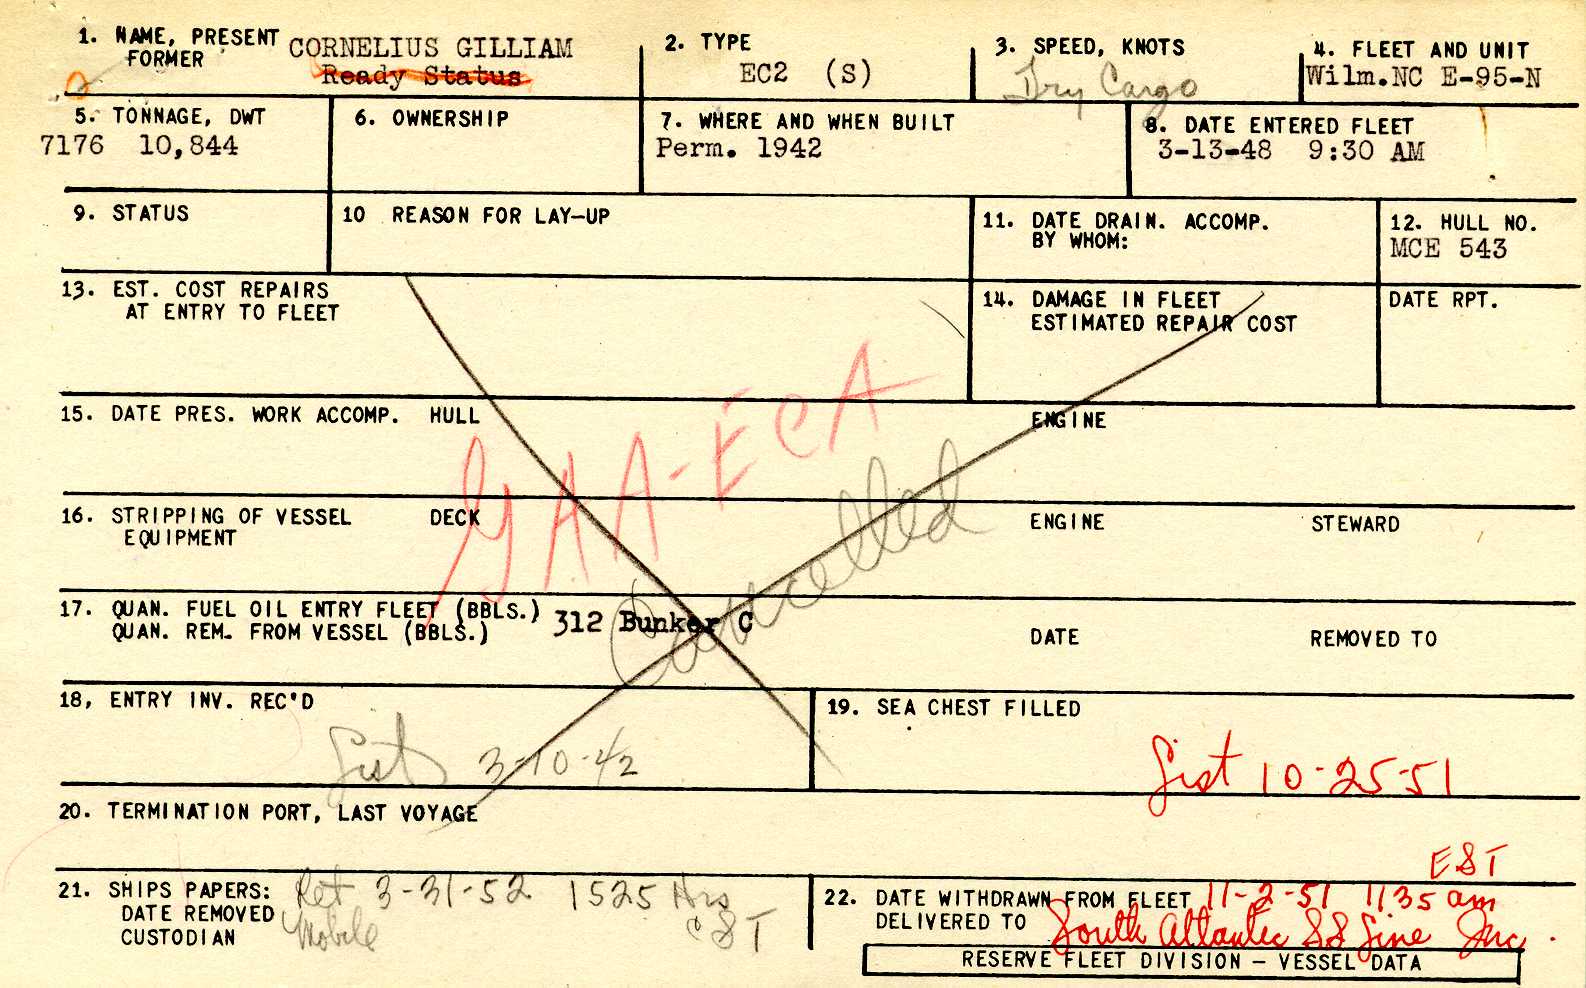 1. NAME, PRESENT CORNELIUS GILLIAM
FORMER Ready Status
2. TYPE
EC2 (S)
3. SPEED, KNOTS
Dry Cargo
4. FLEET AND UNIT
Wilm.NC E-95-N
5. TONNAGE, DWT
7176 10,844
6. OWNERSHIP
7. WHERE AND WHEN BUILT
Perm. 1942
8. DATE ENTERED FLEET
3-13-48 9:30 AM
9. STATUS
10 REASON FOR LAY-UP
11. DATE DRAIN. ACCOMP.
BY WHOM:
12. HULL NO.
MCE 543
13. EST. COST REPAIRS
AT ENTRY TO FLEET
14. DAMAGE IN FLEET
ESTIMATED REPAIR COST
DATE RPT.
15. DATE PRES. WORK ACCOMP. HULL
ENGINE
GAA-ECA
Cancelled
16. STRIPPING OF VESSEL DECK
EQUIPMENT
ENGINE
STEWARD
17. QUAN. FUEL OIL ENTRY FLEET (BBLS.) 312 Bunker C
QUAN. REM. FROM VESSEL (BBLS.)
DATE
REMOVED TO
18, ENTRY INV. REC'D
List 3-10-42
19. SEA CHEST FILLED
List 10-25-51
20. TERMINATION PORT, LAST VOYAGE
21. SHIPS PAPERS: Ret 3-31-52 1525 Hrs
DATE REMOVED Mobile CST
CUSTODIAN
EST
22. DATE WITHDRAWN FROM FLEET 11-2-51 1135 am
DELIVERED TO South Atlantic SS Line Inc.
RESERVE FLEET DIVISION - VESSEL DATA